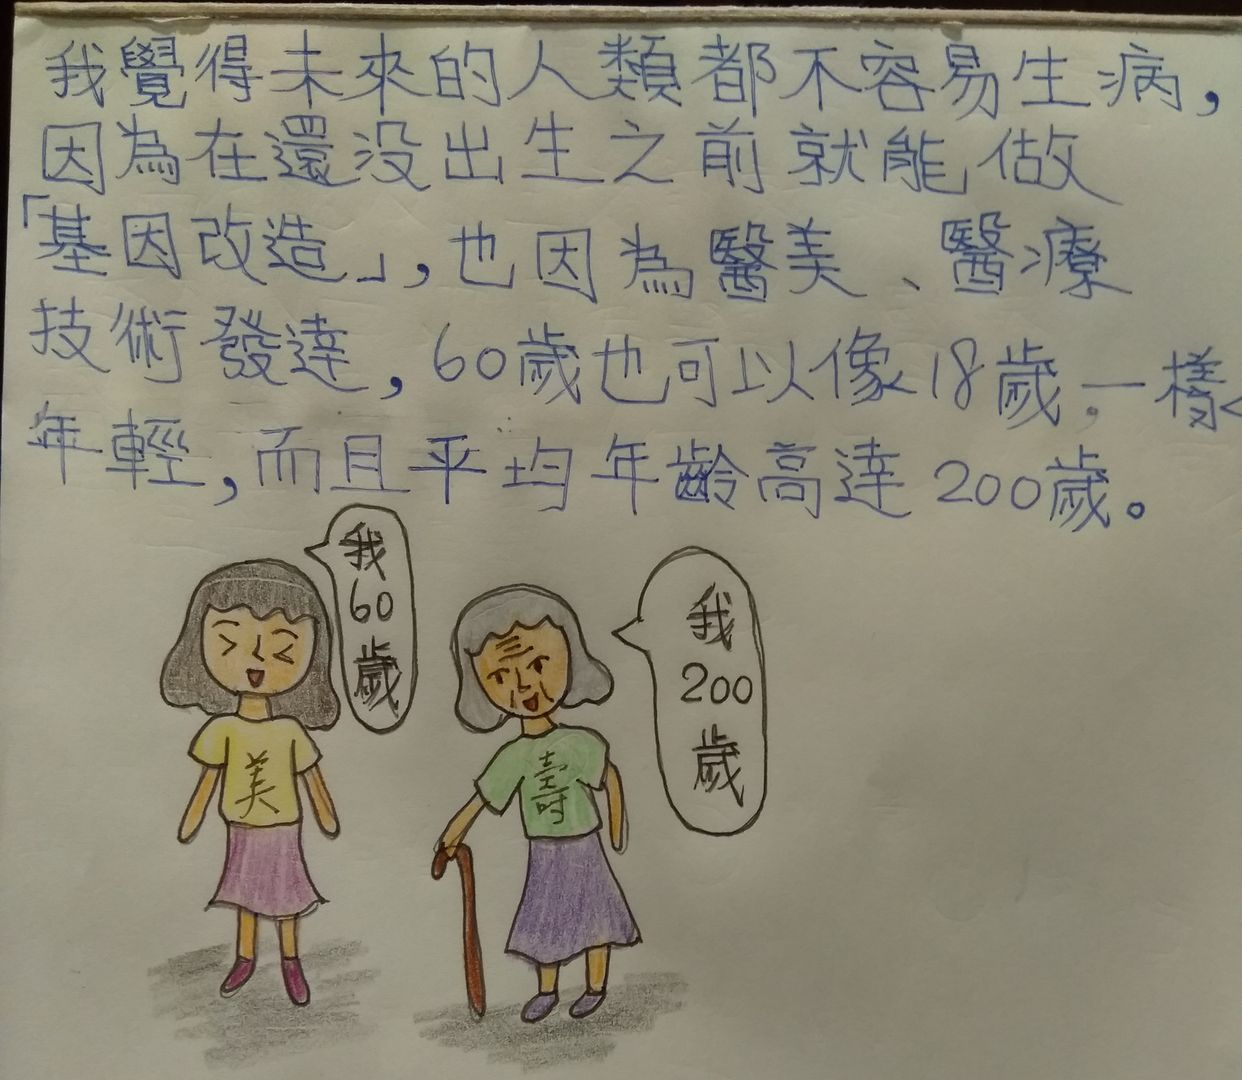 我覺得未來的人類都不容易生病，
因為在還没出生之前就能做
「基因改造」，也因為醫美、醫療
技術發達，60歲也可以像18歲，一樣
年輕，而且平均年齡高達200歲。
我
60
歲
我
200
歲
美
壽